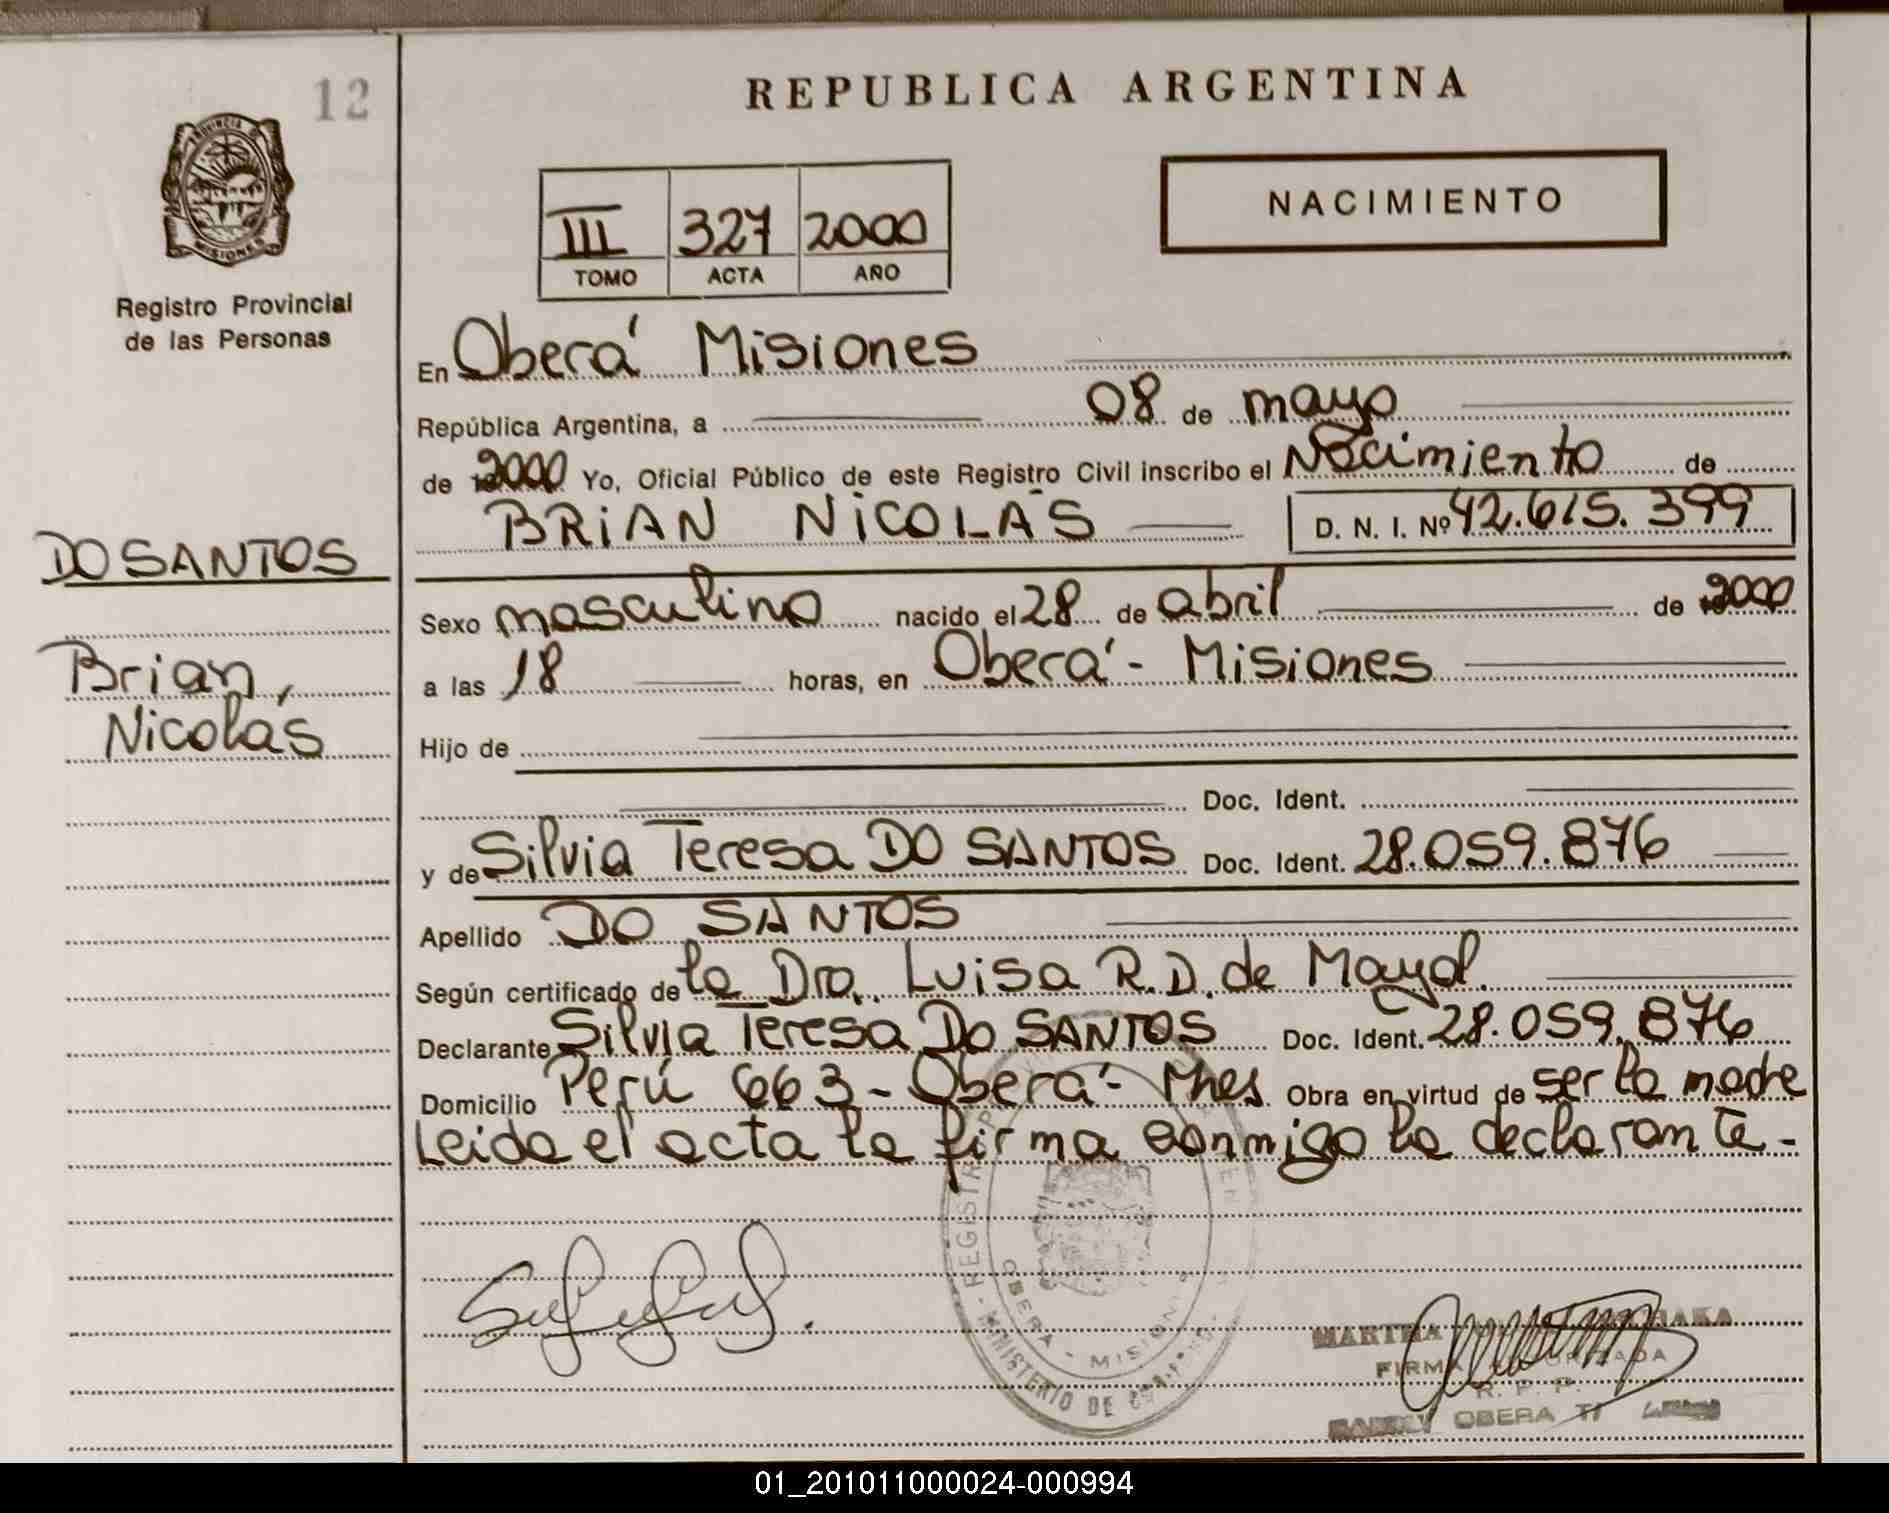 12
REPUBLICA ARGENTINA
PROVINCIA DE
MISIONES
III 327 2000
TOMO ACTA AÑO
NACIMIENTO
Registro Provincial
de las Personas
En Oberá Misiones
República Argentina, a 08 de mayo
de 2000 Yo, Oficial Público de este Registro Civil inscribo el Nacimiento de
BRIAN NICOLÁS D. N. I. Nº 42.615.399
DO SANTOS
Sexo masculino nacido el 28 de abril de 2000
Brian,
Nicolás
a las 18 horas, en Oberá - Misiones
Hijo de
Doc. Ident.
y de Silvia Teresa DO SANTOS Doc. Ident. 28.059.876
Apellido DO SANTOS
Según certificado de la Dra. Luisa R. D. de
Declarante Silvia Teresa DO SANTOS Doc. Ident. 28.059.876
Domicilio Perú 663 - Oberá - Mnes Obra en virtud de ser la madre
Leida el acta la firma conmigo la declarante -
OBERA - MISIONES
MINISTERIO DE
MARTHA
FIRMA AUTORIZADA
R. P. P.
OBERA
01_201011000024-000994